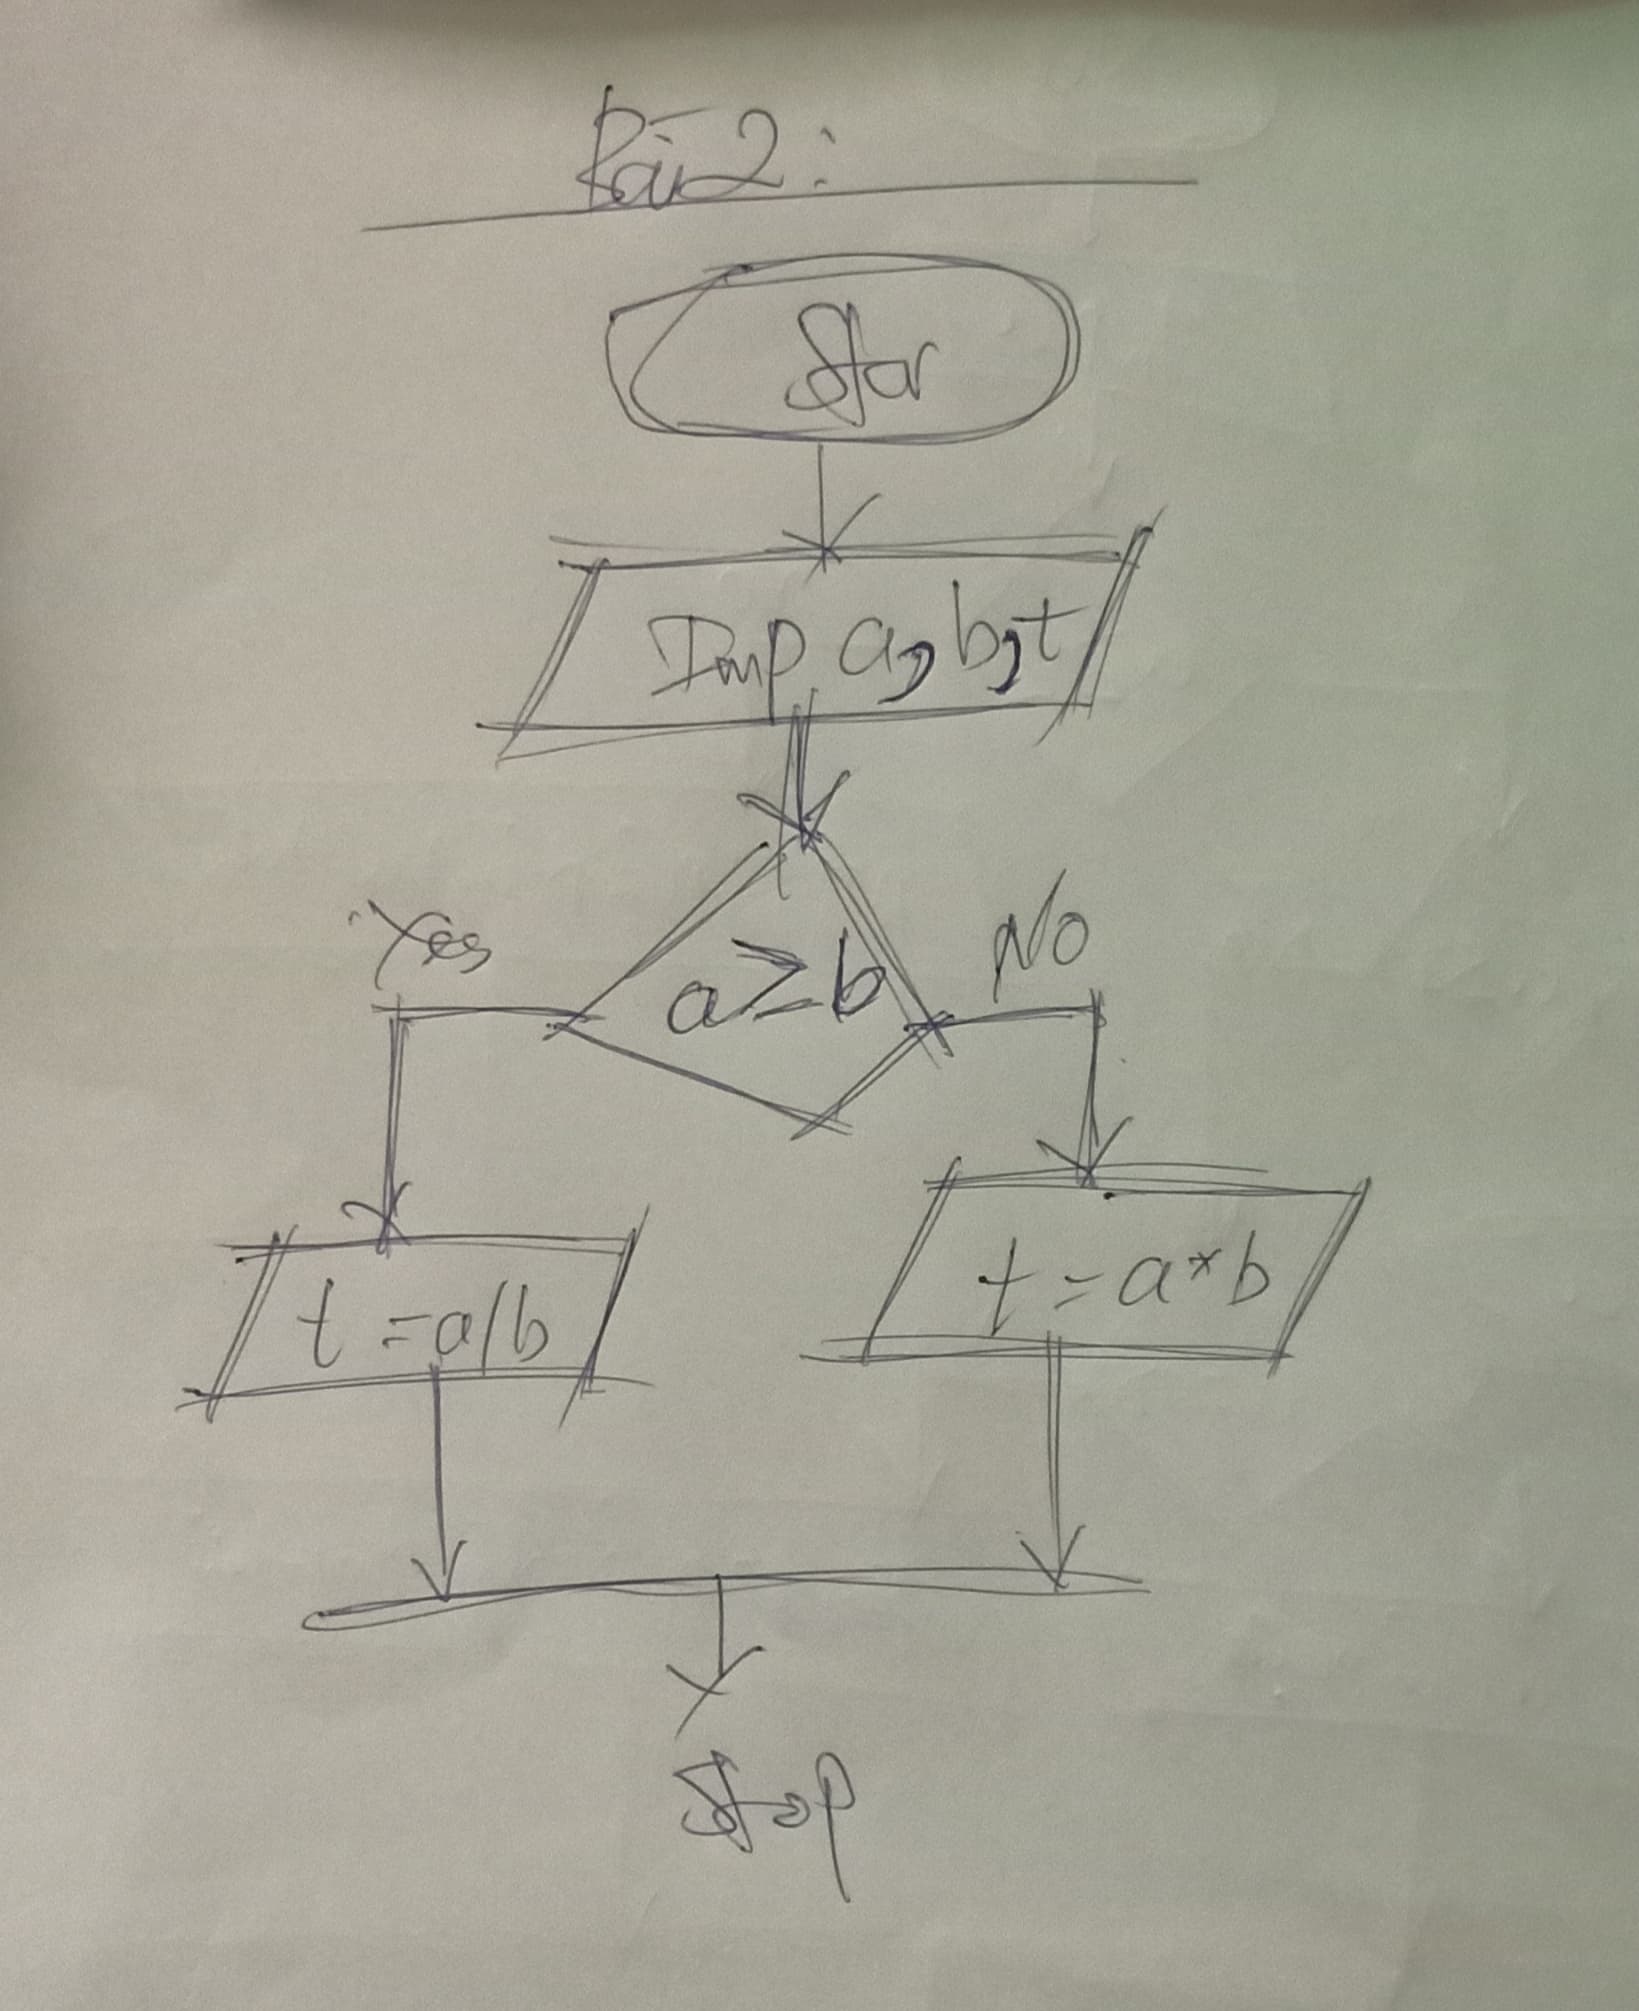 Bài 2:
Star
Inp a, b, t
a ≥ b
Yes
No
t = a/b
t = a*b
Stop